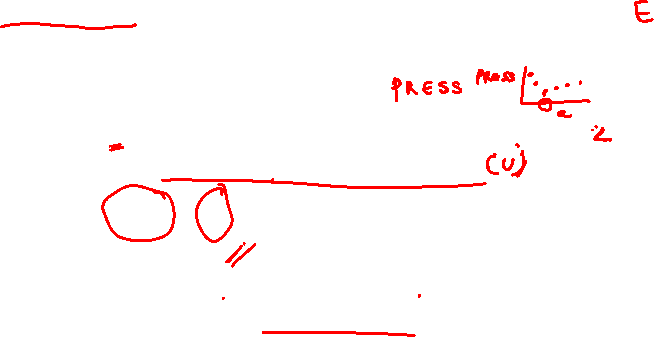 E
PRESS PRESS
2
(U)